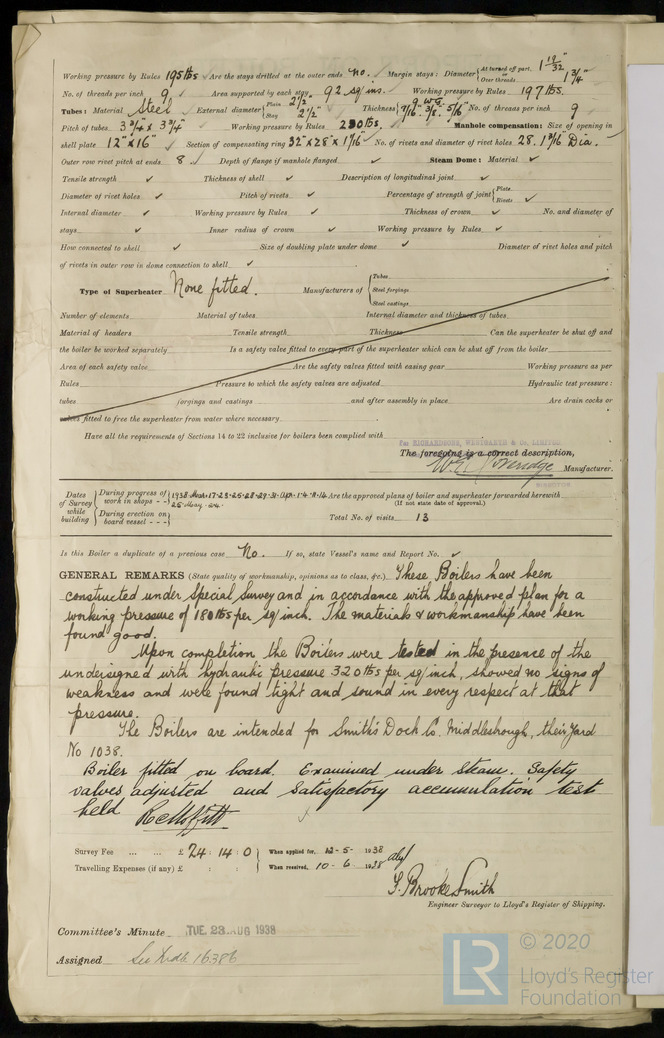 Working pressure by Rules 195 lbs ✓ Are the stays drilled at the outer ends No. ✓ Margin stays: Diameter { At turned off part, 1 19/32" Over threads 1 3/4" ✓
No. of threads per inch 9 ✓ Area supported by each stay 92 sq/ins. ✓ Working pressure by Rules 197 lbs.
Tubes: Material Steel ✓ External diameter { Plain 2 1/2" Stay 2 1/2" ✓ Thickness { 9 WG. 7/16" 3/8" 5/16 ✓ No. of threads per inch 9 ✓
Pitch of tubes 3 3/4" x 3 3/4" ✓ Working pressure by Rules 230 lbs. Manhole compensation: Size of opening in
shell plate 12" x 16" ✓ Section of compensating ring 32" x 28" x 1 1/16" ✓ No. of rivets and diameter of rivet holes 28. 1 3/16 Dia. ✓
Outer row rivet pitch at ends 8 ✓ Depth of flange if manhole flanged ✓ Steam Dome: Material ✓
Tensile strength ✓ Thickness of shell ✓ Description of longitudinal joint ✓
Diameter of rivet holes ✓ Pitch of rivets ✓ Percentage of strength of joint { Plate Rivets ✓
Internal diameter ✓ Working pressure by Rules ✓ Thickness of crown ✓ No. and diameter of
stays ✓ Inner radius of crown ✓ Working pressure by Rules ✓
How connected to shell ✓ Size of doubling plate under dome ✓ Diameter of rivet holes and pitch
of rivets in outer row in dome connection to shell ✓
Type of Superheater None fitted. Manufacturers of { Tubes Steel forgings Steel castings
Number of elements Material of tubes Internal diameter and thickness of tubes
Material of headers Tensile strength Thickness Can the superheater be shut off and
the boiler be worked separately Is a safety valve fitted to every part of the superheater which can be shut off from the boiler
Area of each safety valve Are the safety valves fitted with easing gear Working pressure as per
Rules Pressure to which the safety valves are adjusted Hydraulic test pressure:
tubes forgings and castings and after assembly in place Are drain cocks or
valves fitted to free the superheater from water where necessary
Have all the requirements of Sections 14 to 22 inclusive for boilers been complied with
For RICHARDSONS, WESTGARTH & Co. LIMITED
The foregoing is a correct description,
Manufacturer.
Dates of Survey while building { During progress of work in shops - - 1938 Mar. 17-23-25-28-29-31-Apr. 1-4-11-14 Are the approved plans of boiler and superheater forwarded herewith
25-May (If not state date of approval.)
During erection on board vessel - - - Total No. of visits 13
Is this Boiler a duplicate of a previous case No. If so, state Vessel's name and Report No. ✓
GENERAL REMARKS (State quality of workmanship, opinions as to class, &c.) These Boilers have been
constructed under Special Survey and in accordance with the approved plan for a
working pressure of 180 lbs per sq/inch. The materials & workmanship have been
found good.
Upon completion the Boilers were tested in the presence of the
undersigned with hydraulic pressure 320 lbs per sq/inch, showed no signs of
weakness and were found tight and sound in every respect at that
pressure.
The Boilers are intended for Smith's Dock Co. Middlesbrough, their Yard
No 1038.
Boiler fitted on board. Examined under steam. Safety
valves adjusted and satisfactory accumulation test
held
Survey Fee ... ... £ 24 : 14 : 0 } When applied for, 12-5-1938
Travelling Expenses (if any) £ : : } When received, 10-6-1938
Brooke Smith
Engineer Surveyor to Lloyd's Register of Shipping.
Committee's Minute TUE. 23 AUG 1938
Assigned See 16386
LR © 2020
Lloyd's Register
Foundation